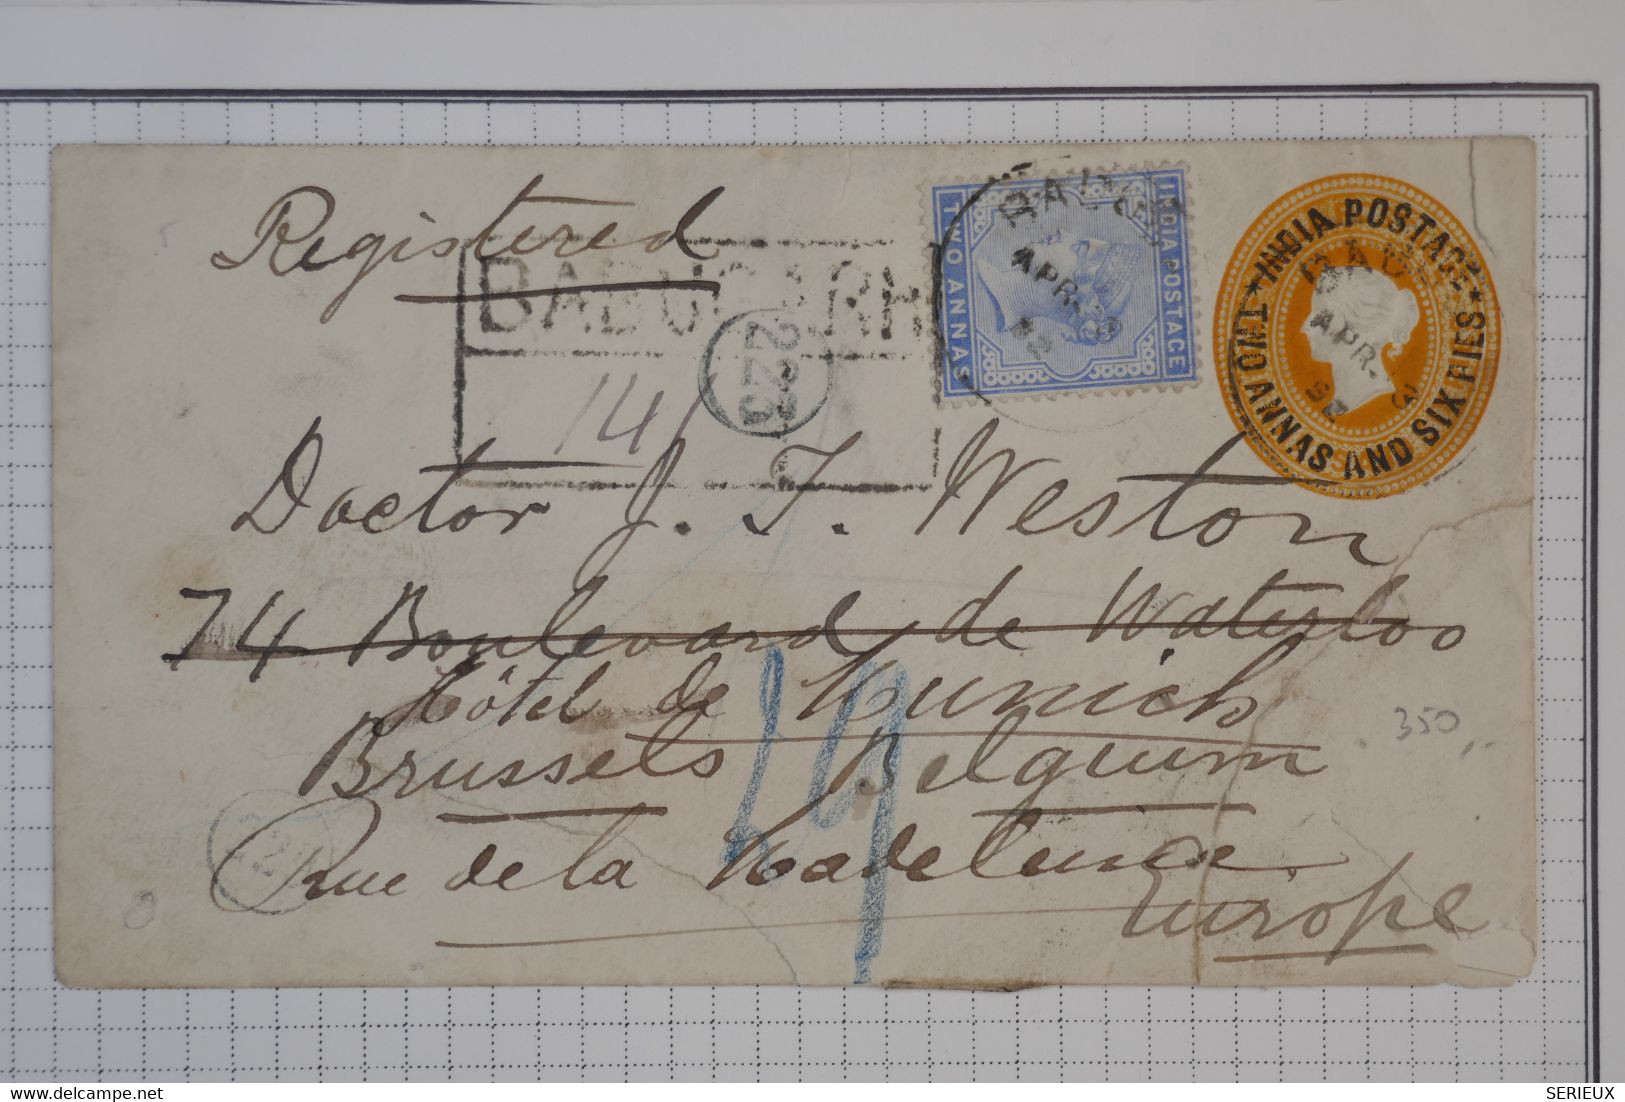 Registered
BABUGARH
INDIA POSTAGE
TWO ANNAS
APR.
INDIA POSTAGE
TWO ANNAS AND SIX PIES
APR.
141
Doctor J. T. Weston
74 Boulevard de Waterloo
Hôtel de Munich
Brussels Belgium
Rue de la Madeleine
Europe
350
SERIEUX
delcampe.net